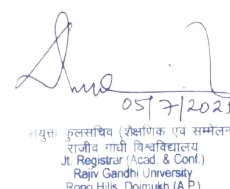 05/7/202
संयुक्त कुलसचिव (शैक्षणिक एवं सम्मेलन
राजीव गांधी विश्वविद्यालय
Jt. Registrar (Acad. & Conf.)
Rajiv Gandhi University
Rono Hills, Doimukh (A.P.)